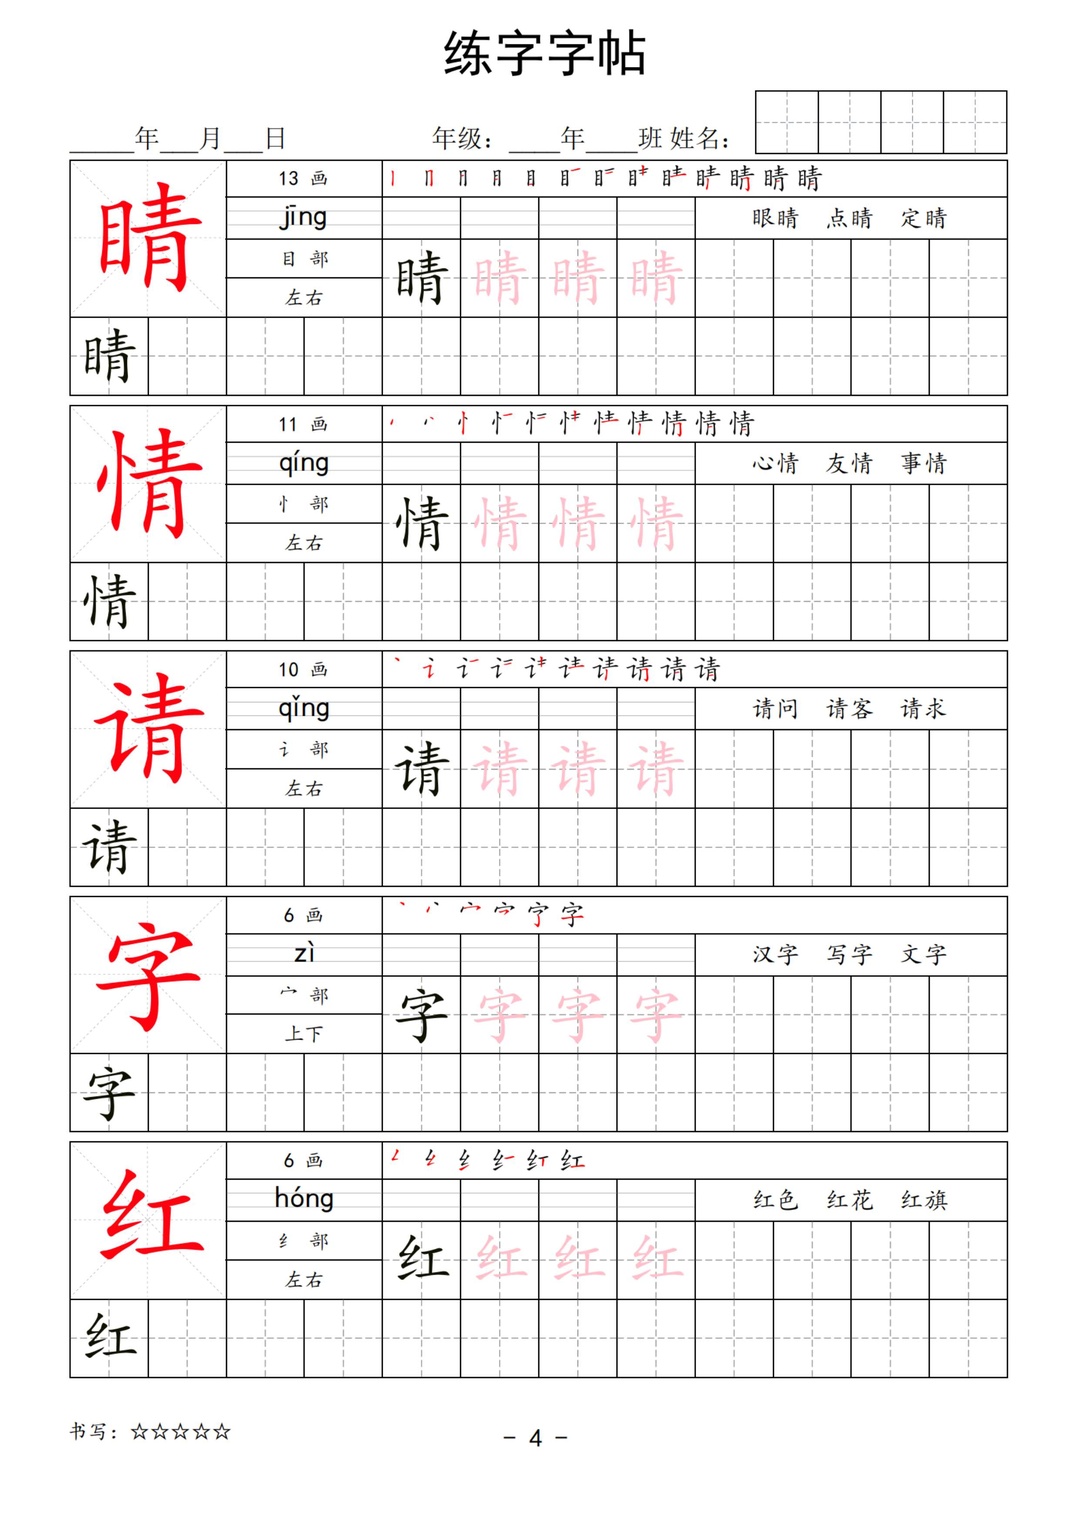 练字字帖
_____年___月___日 年级：____年____班 姓名：
睛 13 画 丨 冂 月 月 目 目 目 目 睛 睛 睛 睛 睛
jīng 眼睛 点睛 定睛
目 部 睛 睛 睛 睛
左右
睛
情 11 画 情 情
qíng 心情 友情 事情
忄 部 情 情 情 情
左右
情
请 10 画 请 请
qǐng 请问 请客 请求
讠 部 请 请 请 请
左右
请
字 6 画 字
zì 汉字 写字 文字
宀 部 字 字 字 字
上下
字
红 6 画 红
hóng 红色 红花 红旗
纟 部 红 红 红 红
左右
红
书写：☆☆☆☆☆
- 4 -